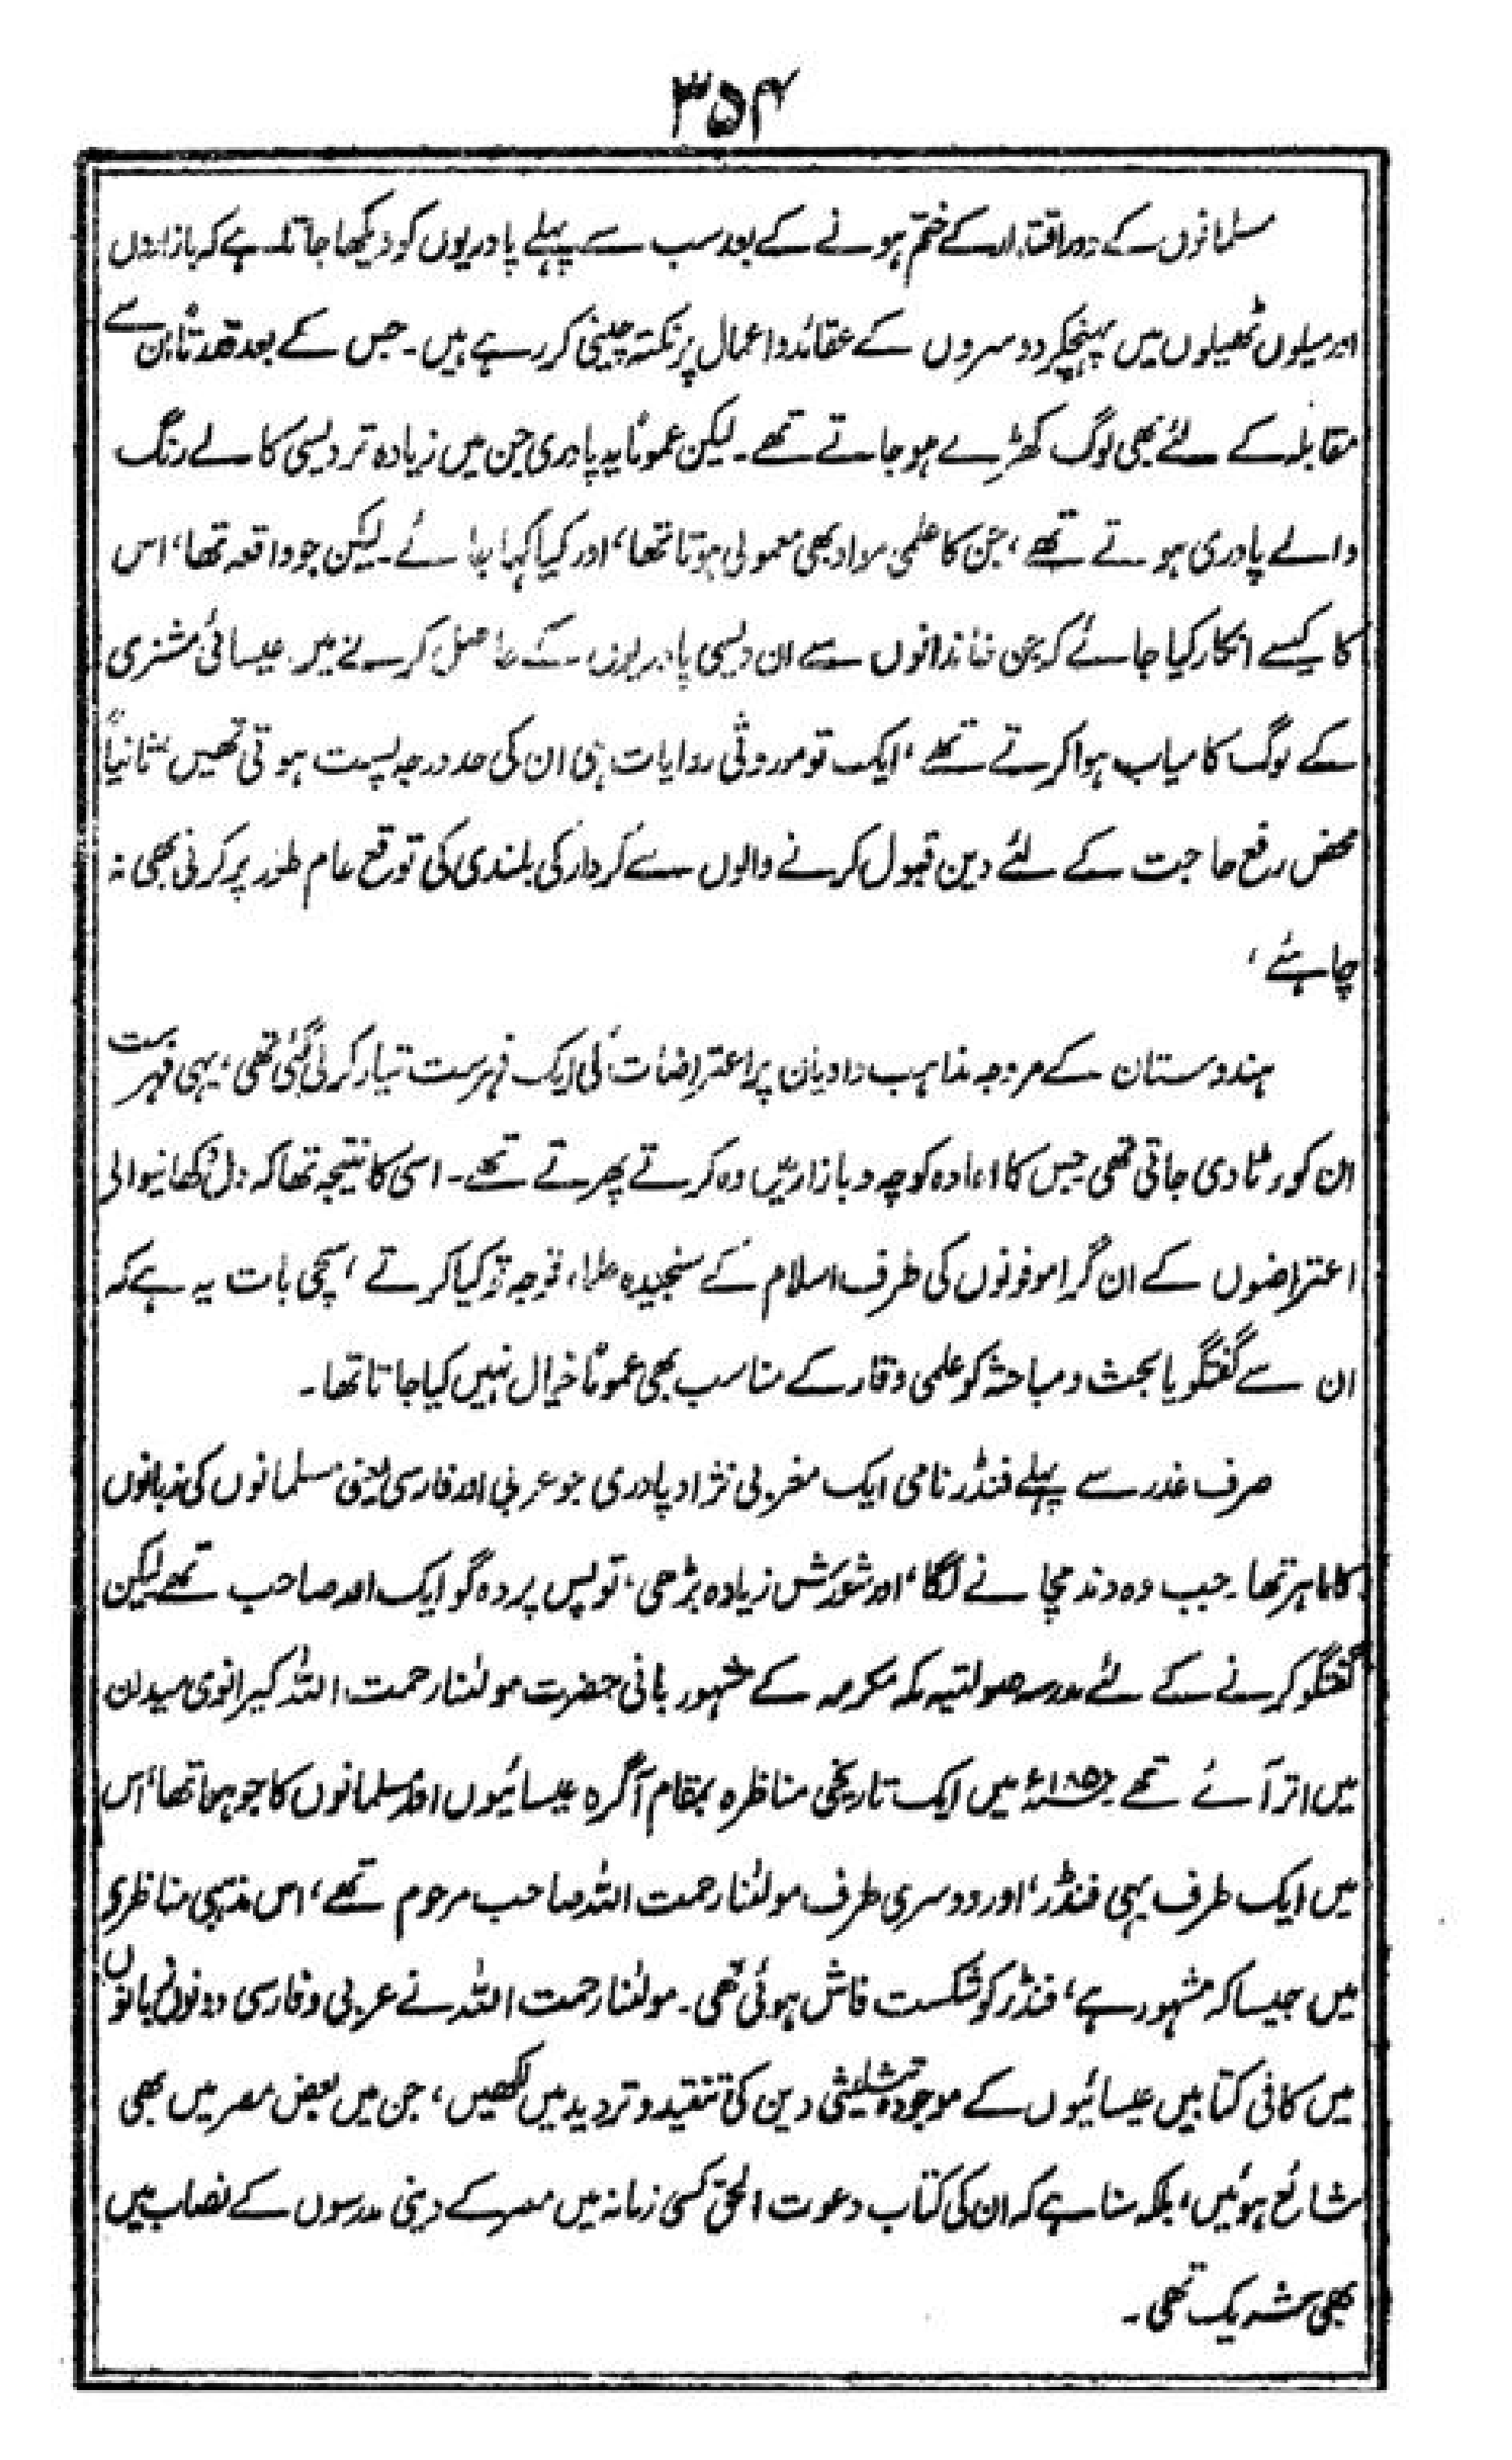 ۳۵۴
مسلمانوں کے دور اقتدار کے ختم ہونے کے بعد سب سے پہلے پادریوں کو دیکھا جاتا ہے کہ بازاروں
اور میلوں ٹھیلوں میں پہنچکر دوسروں کے عقائد و اعمال پر نکتہ چینی کر رہے ہیں۔ جس کے بعد قدرتاً ان سے
مقابلہ کے لئے بھی لوگ کھڑے ہو جاتے تھے۔ لیکن عموماً یہ پادری جن میں زیادہ تر دیسی کالے رنگ
والے پادری ہوتے تھے، جن کا علمی مواد بھی معمولی ہوتا تھا، اور کیا کہا جائے۔ لیکن جو واقعہ تھا، اس
کا کیسے انکار کیا جائے کہ جن خاندانوں سے ان دیسی پادریوں کے حاصل کرنے میں عیسائی مشنری
کے لوگ کامیاب ہوا کرتے تھے، ایک تو موروثی روایات ہی ان کی حد درجہ پست ہوتی تھیں، ثانیاً
محض رفع حاجت کے لئے دین قبول کرنے والوں سے کردار کی بلندی کی توقع عام طور پر کرنی بھی نہ
چاہئے،
ہندوستان کے مروجہ مذاہب و ادیان پر اعتراضات کی ایک فہرست تیار کر لی گئی تھی، یہی فہرست
ان کو رٹا دی جاتی تھی جس کا اعادہ کوچہ و بازار میں وہ کرتے پھرتے تھے۔ اسی کا نتیجہ تھا کہ دل دکھانیوالی
اعتراضوں کے ان گراموفونوں کی طرف اسلام کے سنجیدہ علماء توجہ نہ کیا کرتے، سچی بات یہ ہے کہ
ان سے گفتگو یا بحث و مباحثہ کو علمی وقار کے مناسب بھی عموماً خیال نہیں کیا جاتا تھا۔
صرف غدر سے پہلے فنڈر نامی ایک مغربی نژاد پادری جو عربی اور فارسی یعنی مسلمانوں کی زبانوں
کا ماہر تھا۔ جب وہ دند مچانے لگا، اور شورش زیادہ بڑھی، تو پس پردہ گو ایک اور صاحب تھے لیکن
گفتگو کرنے کے لئے مدرسہ صولتیہ مکہ مکرمہ کے مشہور بانی حضرت مولٰنا رحمت اللہ کیرانوی میدان
میں اتر آئے تھے میں ایک تاریخی مناظرہ بمقام آگرہ عیسائیوں اور مسلمانوں کا جو ہوا تھا، اس
میں ایک طرف یہی فنڈر، اور دوسری طرف مولٰنا رحمت اللہ صاحب مرحوم تھے، اس مذہبی مناظری
میں جیسا کہ مشہور ہے، فنڈر کو شکست فاش ہوئی تھی۔ مولٰنا رحمت اللہ نے عربی و فارسی دونوں زبانوں
میں کافی کتابیں عیسائیوں کے موجودہ تثلیثی دین کی تنقید و تردید میں لکھیں، جن میں بعض مصر میں بھی
شائع ہوئیں، بلکہ سنا ہے کہ ان کی کتاب دعوت الحق کسی زمانہ میں مصر کے دینی مدرسوں کے نصاب میں
بھی شریک تھی۔